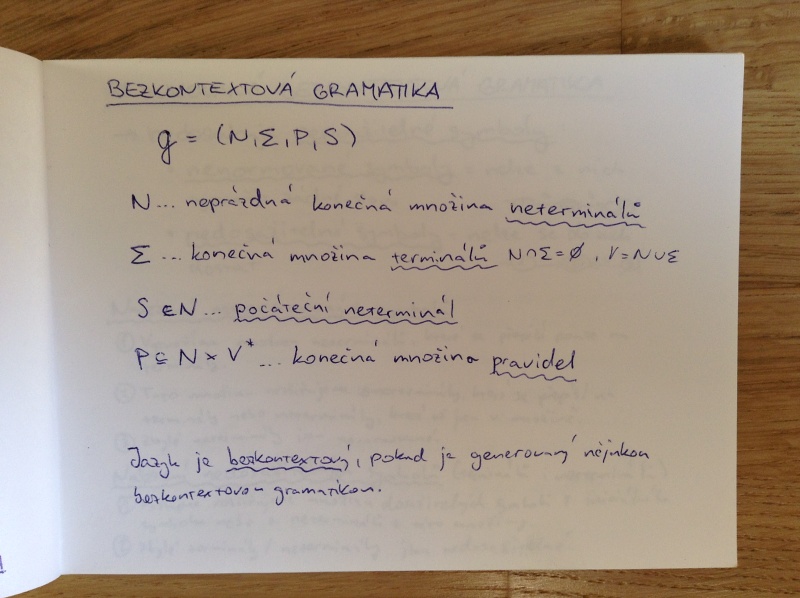 BEZKONTEXTOVÁ GRAMATIKA
g = (N, Σ, P, S)
N ... neprázdná konečná množina neterminálů
Σ ... konečná množina terminálů N∩Σ=∅, V=N∪Σ
S ∈ N ... počáteční neterminál
P ⊆ N × V* ... konečná množina pravidel
Jazyk je bezkontextový, pokud je generovaný nějakou
bezkontextovou gramatikou.